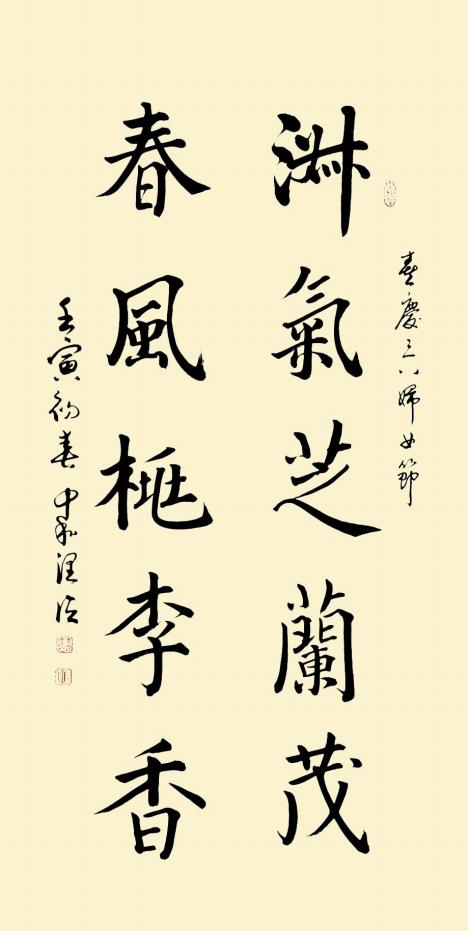 喜慶三八婦女節
淑氣芝蘭茂
春風桃李香
壬寅初春中和